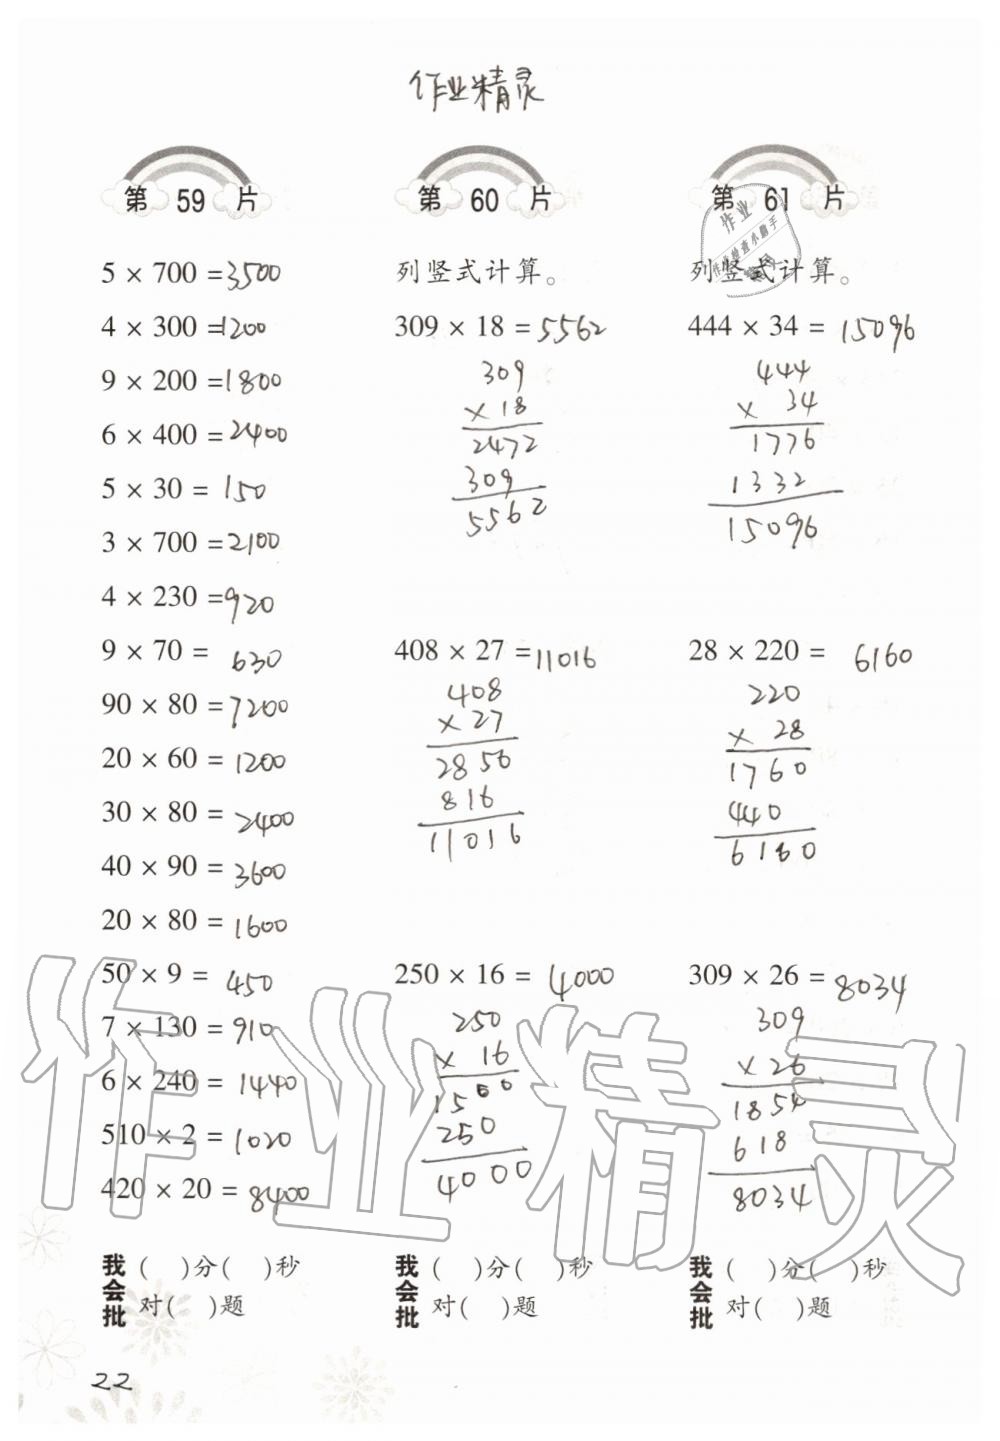 作业精灵
第 59 片
5 × 700 = 3500
4 × 300 = 1200
9 × 200 = 1800
6 × 400 = 2400
5 × 30 = 150
3 × 700 = 2100
4 × 230 = 920
9 × 70 = 630
90 × 80 = 7200
20 × 60 = 1200
30 × 80 = 2400
40 × 90 = 3600
20 × 80 = 1600
50 × 9 = 450
7 × 130 = 910
6 × 240 = 1440
510 × 2 = 1020
420 × 20 = 8400
我会批
( )分( )秒
对( )题
第 60 片
列竖式计算。
309 × 18 = 5562
309
× 18
2472
309
5562
408 × 27 = 11016
408
× 27
2856
816
11016
250 × 16 = 4000
250
× 16
1500
250
4000
我会批
( )分( )秒
对( )题
第 61 片
作业
列竖式计算。
444 × 34 = 15096
444
× 34
1776
1332
15096
28 × 220 = 6160
220
× 28
1760
440
6160
309 × 26 = 8034
309
× 26
1854
618
8034
我会批
( )分( )秒
对( )题
作业精灵
22